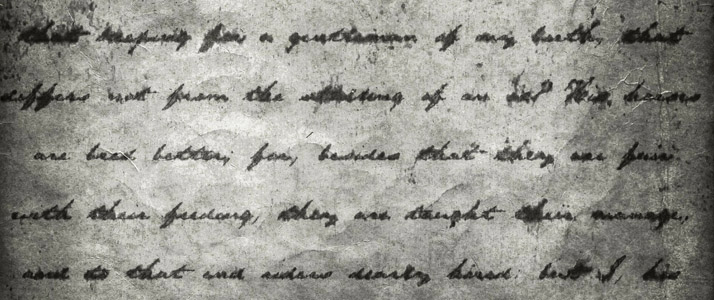 that keeping for a gentleman of my birth, that
differs not from the stalling of an ox? His horses
are bred better; for, besides that they are fair
with their feeding, they are taught their manage,
and to that end riders dearly hired: but I, his